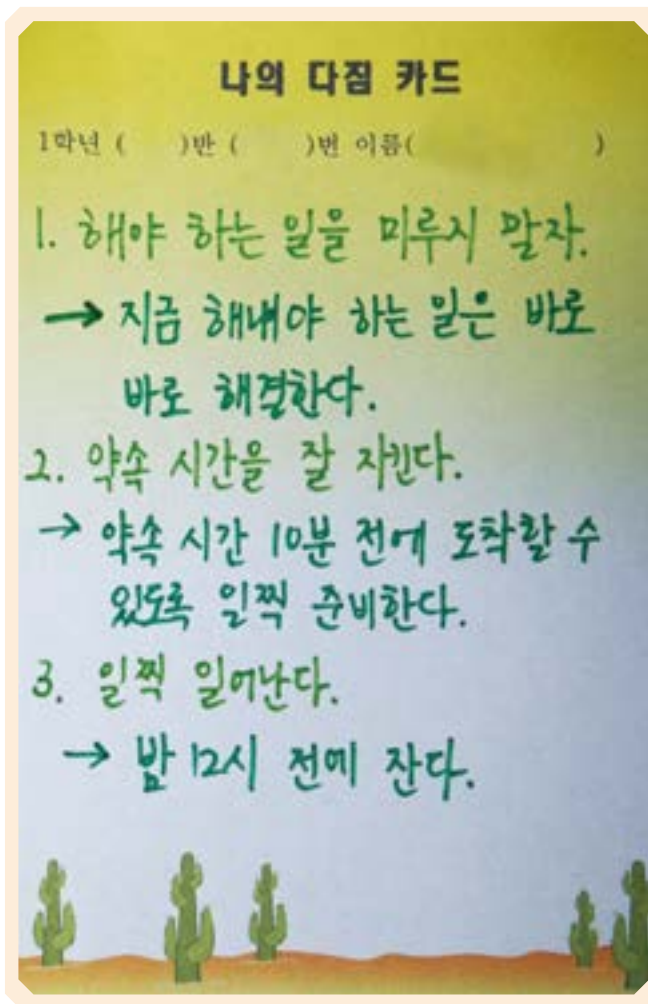 나의 다짐 카드
1학년 (    )반 (    )번 이름(            )
1. 해야 하는 일을 미루지 말자.
→ 지금 해내야 하는 일은 바로
바로 해결한다.
2. 약속 시간을 잘 지킨다.
→ 약속 시간 10분 전에 도착할 수
있도록 일찍 준비한다.
3. 일찍 일어난다.
→ 밤 12시 전에 잔다.